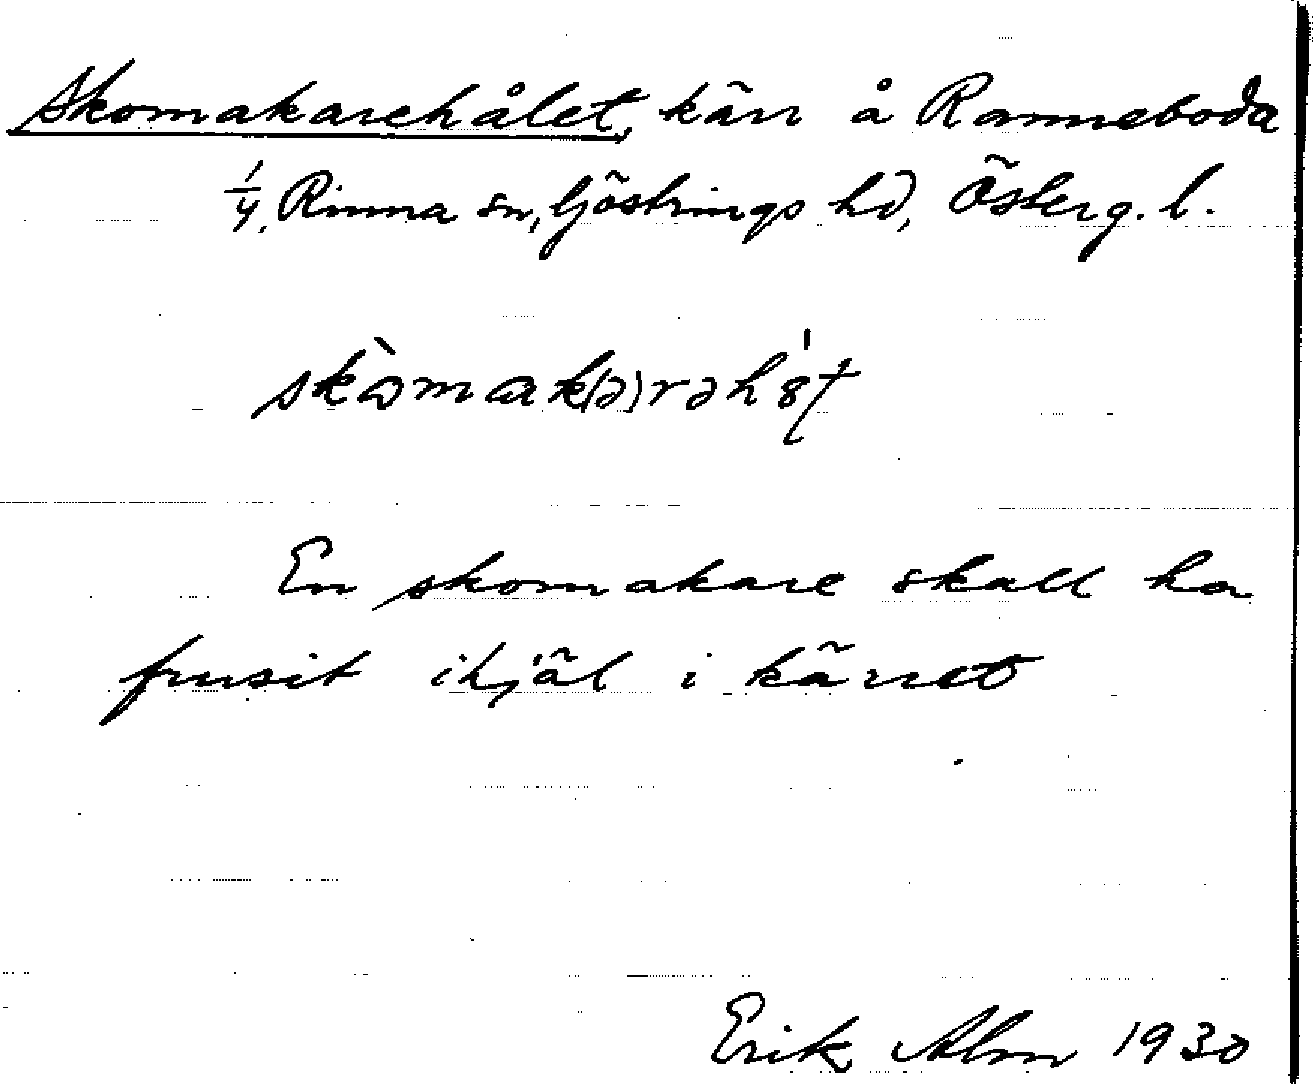 Skomakarehålet, kärr å Ranneboda
1/4, Rinna sn, Göstrings hd, Österg. l.
En skomakare skall ha
frusit ihjäl i kärret
Erik Alm 1930